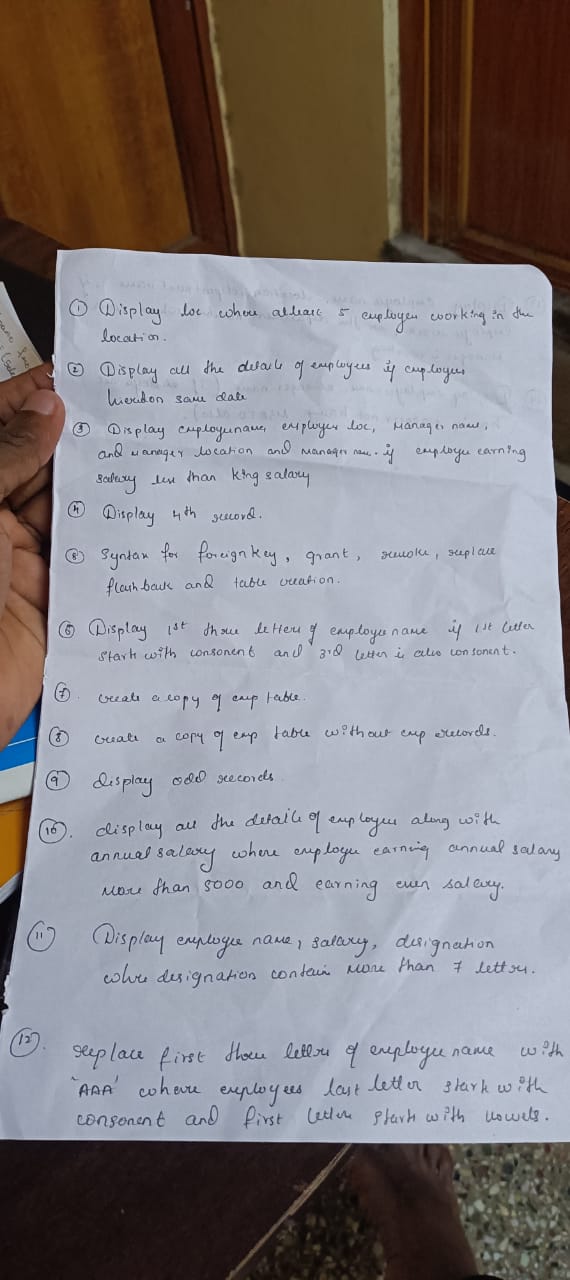 ① Display loc where atleast 5 employee working in the
location.
② Display all the details of employees if employees
hiredon same date
③ Display employeename, employee loc, Manager name,
and Manager location and manager name. if employee earning
salary less than king salary
④ Display 4th record.
⑤ Syntax for foreignkey, grant, revoke, replace
flashback and table creation.
⑥ Display 1st three letters of employee name if 1st letter
start with consonent and 3rd letter is also consonent.
⑦. create a copy of emp table.
⑧ create a copy of emp table without emp records.
⑨ display odd records.
⑩. display all the details of employees along with
annual salary where employee earning annual salary
more than 5000 and earning even salary.
⑪ Display employee name, salary, designation
where designation contain more than 7 letters.
⑫. replace first three letters of employee name with
'AAA' where employees last letter start with
consonent and first letter start with vowels.